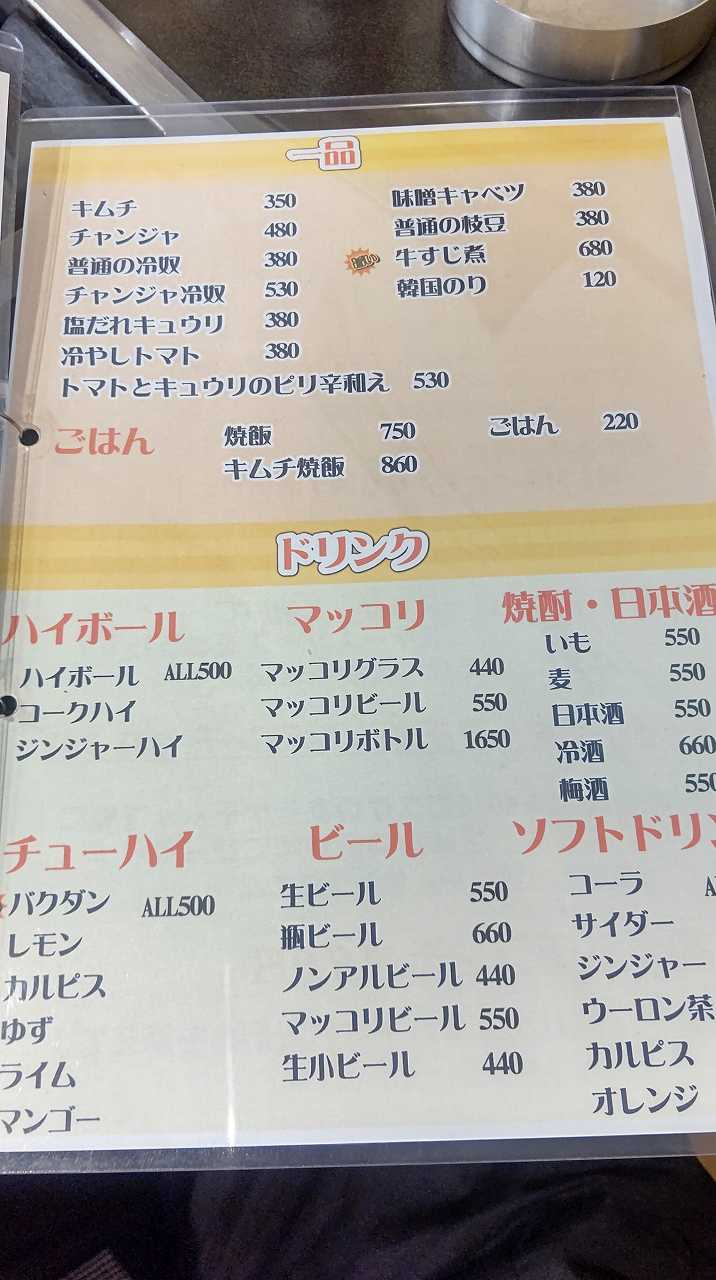 一品
キムチ 350
チャンジャ 480
普通の冷奴 380
チャンジャ冷奴 530
塩だれキュウリ 380
冷やしトマト 380
トマトとキュウリのピリ辛和え 530
味噌キャベツ 380
普通の枝豆 380
牛すじ煮 680
韓国のり 120
ごはん
焼飯 750
キムチ焼飯 860
ごはん 220
ドリンク
ハイボール
ハイボール ALL500
コークハイ
ジンジャーハイ
マッコリ
マッコリグラス 440
マッコリビール 550
マッコリボトル 1650
焼酎・日本酒
いも 550
麦 550
日本酒 550
冷酒 660
梅酒 550
チューハイ
バクダン ALL500
レモン
カルピス
ゆず
ライム
マンゴー
ビール
生ビール 550
瓶ビール 660
ノンアルビール 440
マッコリビール 550
生小ビール 440
ソフトドリン
コーラ
サイダー
ジンジャー
ウーロン茶
カルピス
オレンジ